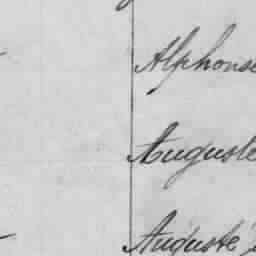 Alphonse
Auguste
Auguste